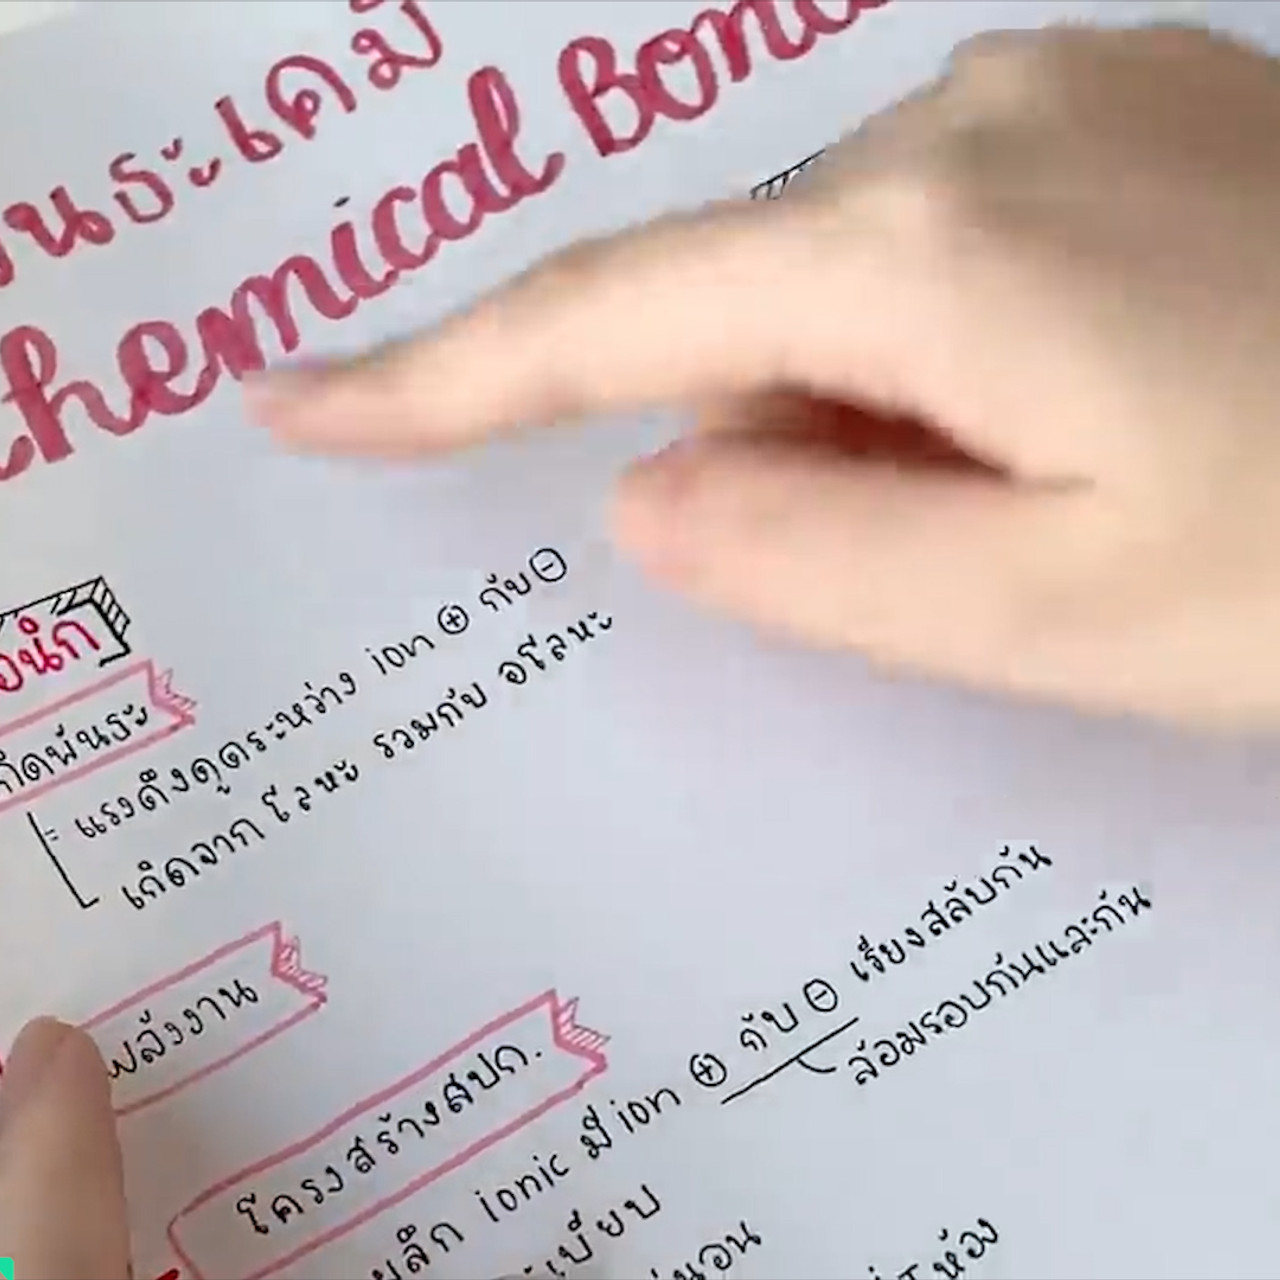 นธะเคมี
hemical Bon
อนิก
กิดพันธะ
แรงดึงดูดระหว่าง ion ⊕ กับ ⊖
เกิดจาก โลหะ รวมกับ อโลหะ
พลังงาน
โครงสร้างสปก.
ผลึก ionic มี ion ⊕ กับ ⊖ เรียงสลับกัน
ล้อมรอบกันและกัน